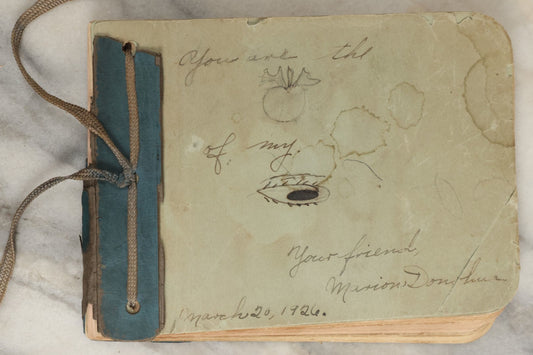 You are the
of my.
Your friend,
Marion Donahue
March 20, 1926.